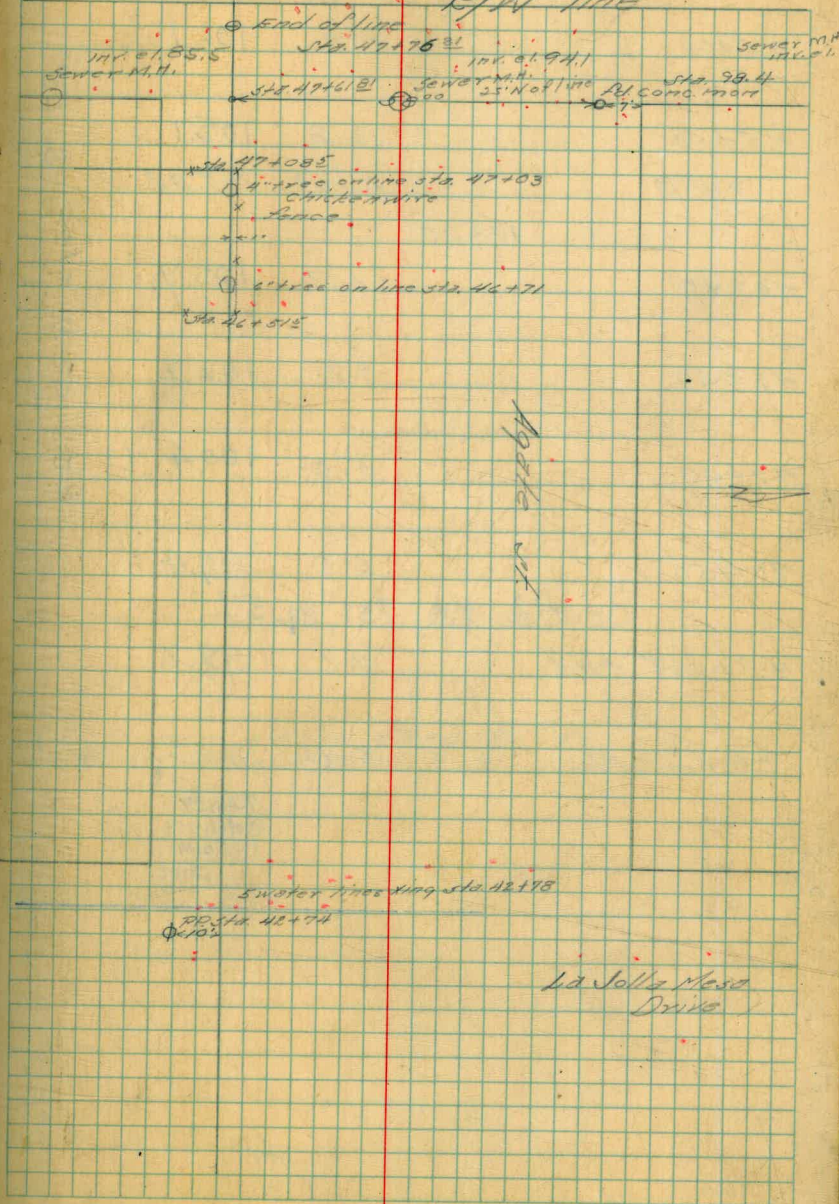 R/W line
End of line
Sta. 47+76 81
inv. el. 85.5
Sewer M.H.
inv. el. 94.1
Sewer M.H.
25' N of line
sewer M.H.
inv. el.
Sta. 98.4
Fd. conc. mon
7'
Sta 47+61 81
00
Sta. 47+08 5
4" tree on line sta. 47+03
Chicken wire
fence
1'
6" tree on line sta. 46+71
Sta. 46+51 5
Agate St.
5 water lines xing sta 42+78
P.P. Sta. 42+74
10'
La Jolla Mesa
Drive